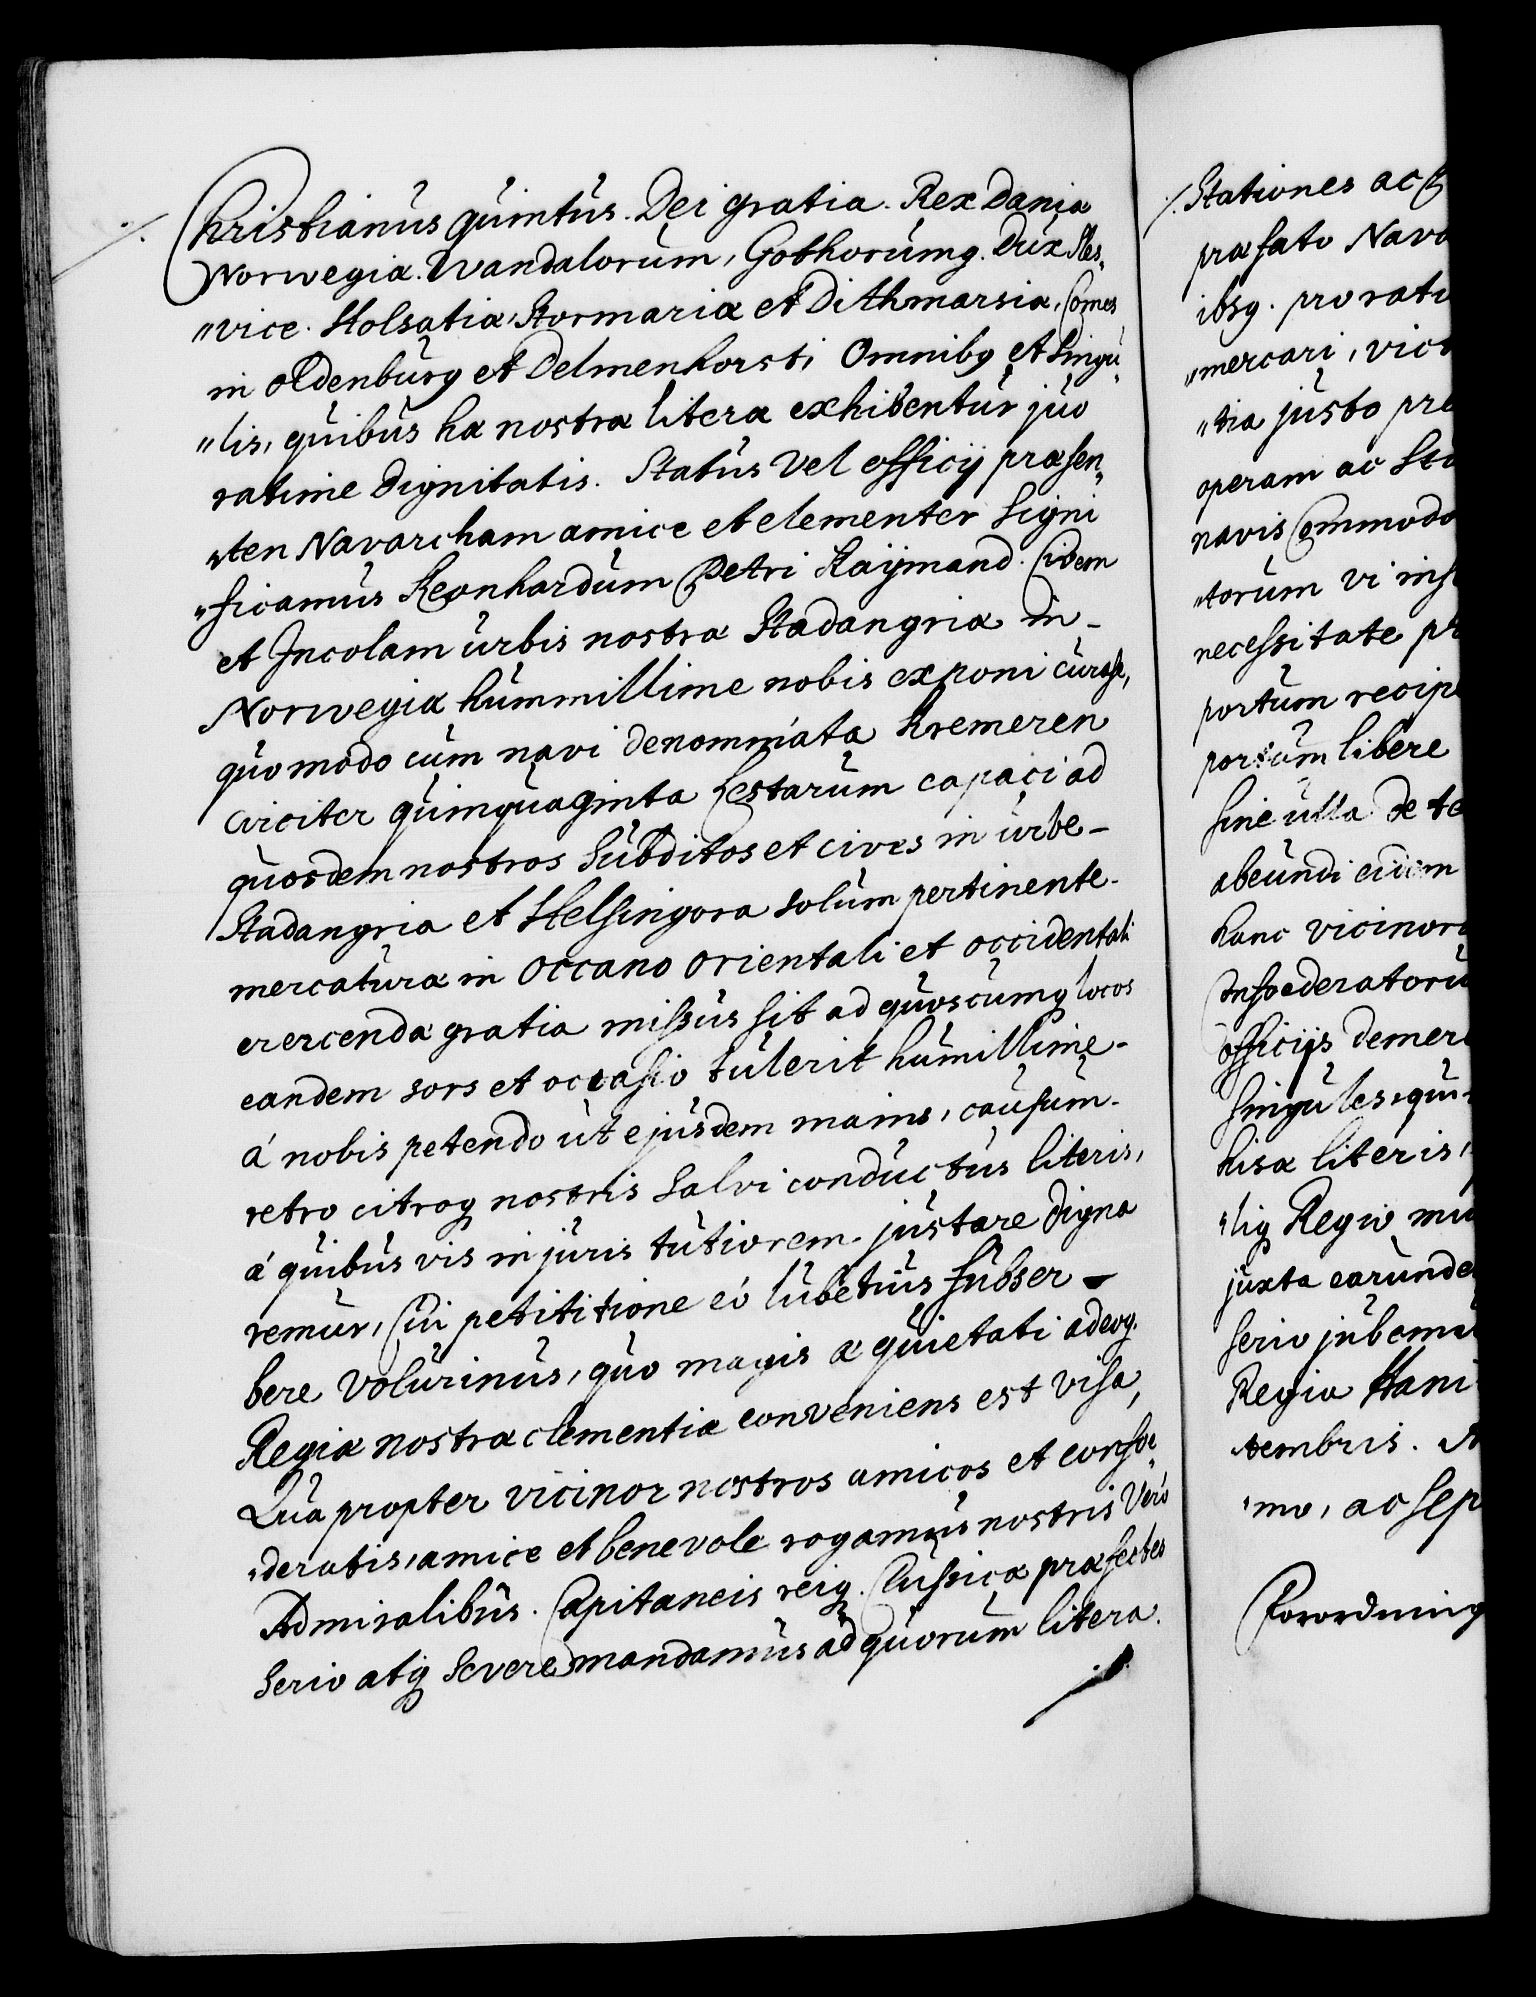 ./.
Christianus quintus. Dei gratia. Rex Daniæ
Norwegiæ. Wandalorum, Gothorumq. Dux Sles„
„vice. Holsatiæ, Stormariæ et Dithmarsiæ, Comes
in Oldenburg et Delmenhorst; Omnibq et singu„
„lis, quibus hæ nostræ literæ exhibentur juo
ratime dignitatis. Status vel officij præsen„
„ten Navarcham amice et elementer signi
„ficamus Leonhardum Petri Kaijmand. Civem
et Incolam urbis nostræ Stadangriæ in-
Norwegiæ hummillime nobis exponi curasse,
quomodo cum navi denominata Kremeren
circiter quinquaginta Lestarum capaci ad
quosdem nostros subditos et cives in urbe-
Stadangria et Helsingora solum pertinente-
mercaturæ in occano orientali et occidentali
erercendæ gratia missus sit ad quoscumq locos
eandem sors et occasio tulerit humillime-
á nobis petendo ut ejusdem mains, causum-
retro citroq nostris salvi conductus literis,
á quibus vis injuris tutiorem justare digna
remur, Cui petititione eó lubetius subser-
bere volurinus, quo magis æquietati adeoq.
Regiæ nostræ clementiæ conveniens est visa,
Qua propter vicinor nostros amicos et confoe„
„deratis, amice et benevole rogamus nostris verò
Admiralibus. Capitaneis reiq. Clussicæ præfectes
serio atq severe mandamus ad quorum litera.
./.
./. Stationes ac
præfato Nava
ibsq. pro ratu
„mercari, vict
„tia justo pre
operam ac stu
navis Commodo
„torum vi inf
necessitate pr
portum recipe
portum libere
sine ulla de te
abeundi
hanc vicinoru
Infoederatoru
officijs demere
singules, qui
hisæ literis,
„liq Regio mu
juxta earunde
serio jubemu
Regia Hani
tembris. A
„mo, ac sep
Forordning